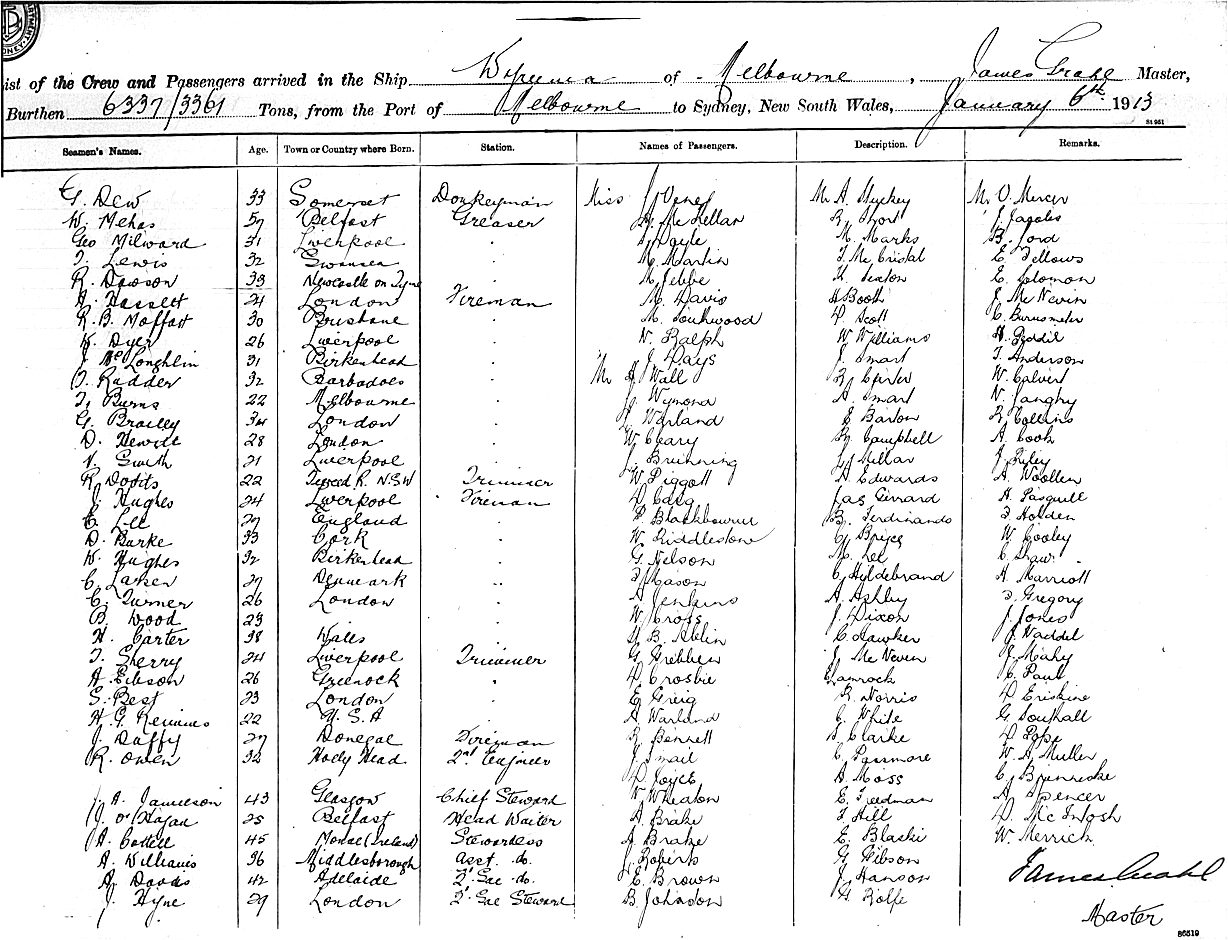 ist of the Crew and Passengers arrived in the Ship Wyreema of Melbourne, James Grahl Master,
Burthen 6337/3361 Tons, from the Port of Melbourne to Sydney, New South Wales, January 6th 1913
81951
Seamen's Names. Age. Town or Country where Born. Station. Names of Passengers. Description. Remarks.
G. Dew 33 Somerset Donkeyman Miss J Mr A Stuckey Mr O. Mercer
W. Mehas 57 Belfast Greaser A. McKellar R. J. Jacobs
Geo Milward 31 Liverpool " Doyle M. Marks B. Lord
T. Lewis 32 Swansea " M. Martin T. McCristal E. Fellows
R. Dawson 33 Newcastle on Tyne " M. Jebbe H. Sexton E. Solomon
A. Hassett 24 London Fireman M. Davis A Booth J. McNevin
R.B. Moffatt 30 Brisbane " M. Southwood D. Scott C.
W. Dyer 26 Liverpool " N. Ralph W Williams A.
J. McLoughlin 31 Birkenhead " J. Days J. Smart T. Anderson
T. Radder 32 Barbadoes " Mr A Wall R. Carter W. Calvert
T. Burns 22 Melbourne " J. Wymond A. Smart N. Langhy
G. Brailey 34 London " J. Warland E Barton R. Collins
D. Hewitt 28 London " W Cleary R. Campbell A. Cook
V. Smith 21 Liverpool " J. Brinning J. Millar J. Riley
R Dodds 22 Tweed R. N.S.W Trimmer W Piggott A. Edwards A. Woollen
J. Hughes 24 Liverpool Fireman D Craig Jas Girvard A. Pasquill
C. Lee 27 England " P. Blackbourne B. Ferdinando T Holden
D. Burke 33 Cork " W. Riddlestone C. Brice W. Cooley
W. Hughes 32 Birkenhead " G. Nelson M. Lee C. Shaw
C. Larsen 27 Denmark " T Mason C. Hyldebrand A. Marriott
C. Turner 26 London " A Jenkins A. Ashley T. Gregory
B. Wood 23 " W. Cross J. Dixon J. Jones
H. Carter 38 Wales " H. B. Ablin C. Hawker J. Waddel
T. Sherry 24 Liverpool Trimmer G. Gribben J. McNeven J. Mahy
A. Gibson 26 Greenock " D. Crosbie Lamrock C. Paul
S. Best 23 London " E Greig R. Norris D. Erskine
H. G. Reimes 22 U.S.A " A Warland C. White G. Southall
J. Duffy 27 Donegal Fireman R. Bennett S. Clarke D. Pope
R. Owen 32 Holy Head 2nd Engineer J. Smail C. Passmore W. A. Muller
D. Joyce A. Moss C.
J. A. Jamieson 43 Glasgow Chief Steward W Wheaton E. Freedman A Spencer
J. O'Hagan 25 Belfast Head Waiter A. Brake T. Hill D. McIntosh
A. Cottell 45 (Ireland) Stewardess A Brake E. Blaski W. Merrick
A. Williams 36 Middlesborough Asst. do. J. Roberts G. Gibson
A. Davis 42 Adelaide 2nd Sae do. E. Brown J. Hanson
J. Hyne 29 London 2nd Sae Steward B. Johnson H Rolfe
James Grahl
Master
86519